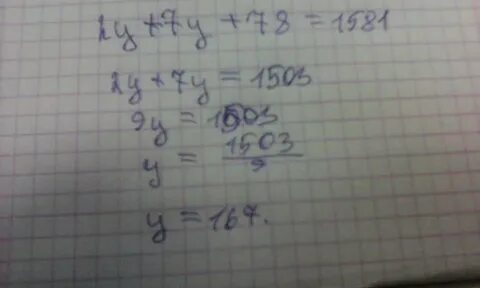 2y + 7y + 78 = 1581
2y + 7y = 1503
9y = 1503
y = 1503/9
y = 167.